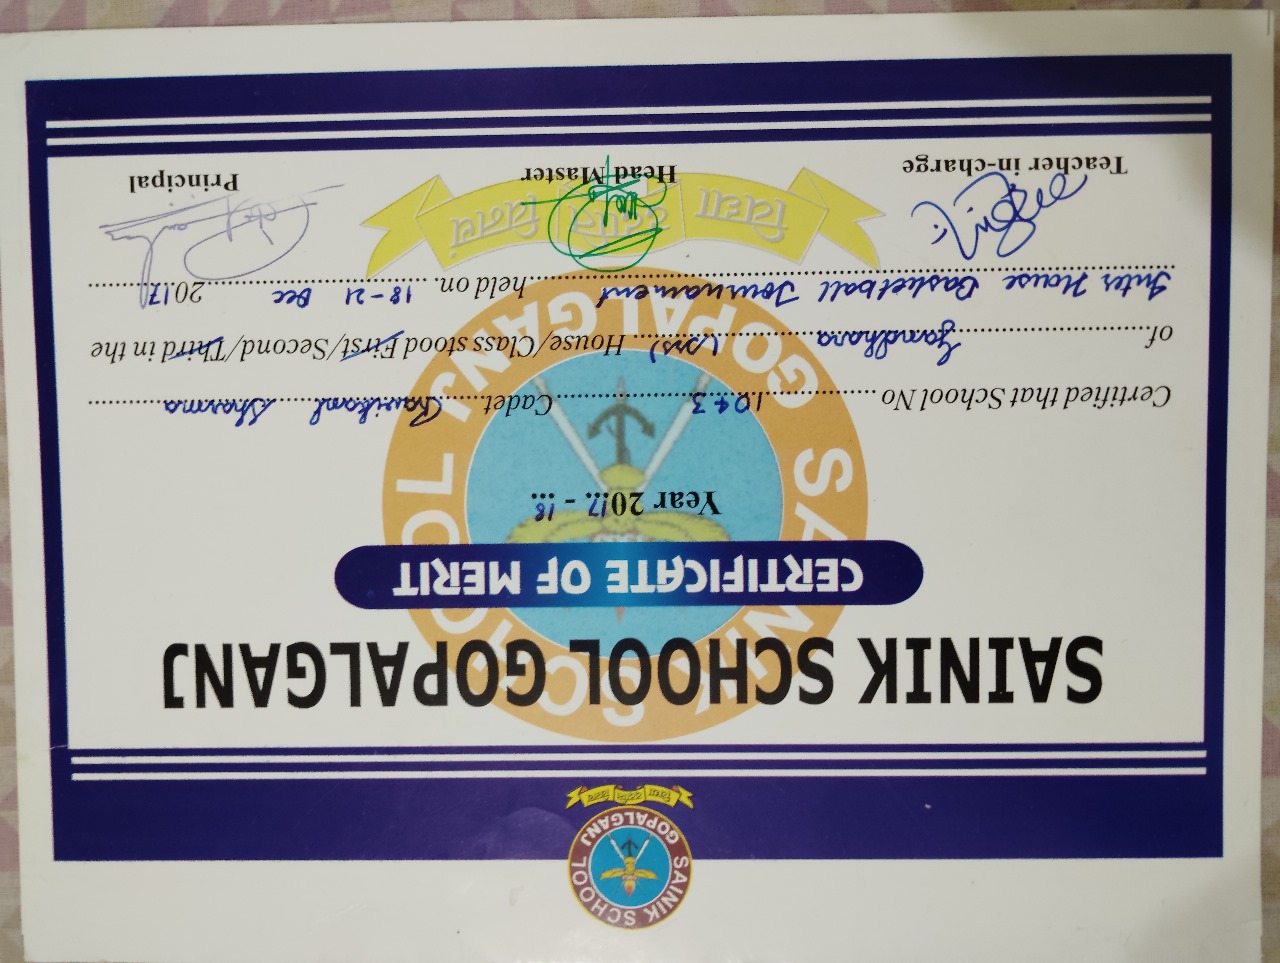 SAINIK SCHOOL GOPALGANJ
विद्या उद्योग विनय
SAINIK SCHOOL GOPALGANJ
CERTIFICATE OF MERIT
Year 2017 - 18
Certified that School No 1043 Cadet Ravikant Sharma
of Gandhara (Jrs) House/Class stood First/Second/Third in the
Inter House Basketball Tournament held on 18-21 Dec 2017
विद्या उद्योग विनय
SAINIK SCHOOL GOPALGANJ
Teacher in-charge Head Master Principal